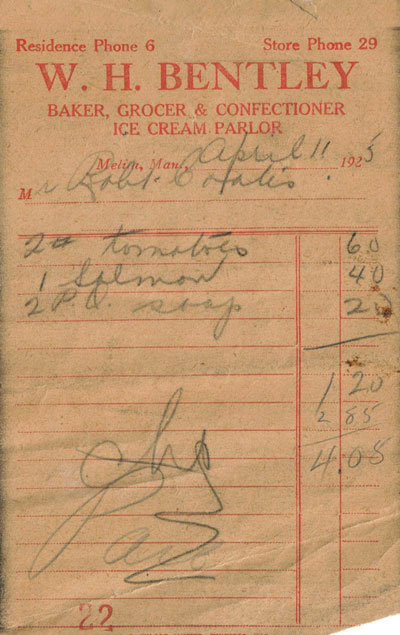 Residence Phone 6 Store Phone 29
W. H. BENTLEY
BAKER, GROCER & CONFECTIONER
ICE CREAM PARLOR
Melita, Man., April 11 1925
Mr Robt.
2# tomatoes 60
1 Salmon 40
2 P.O. soap 20
1 20
2 85
4.05
22